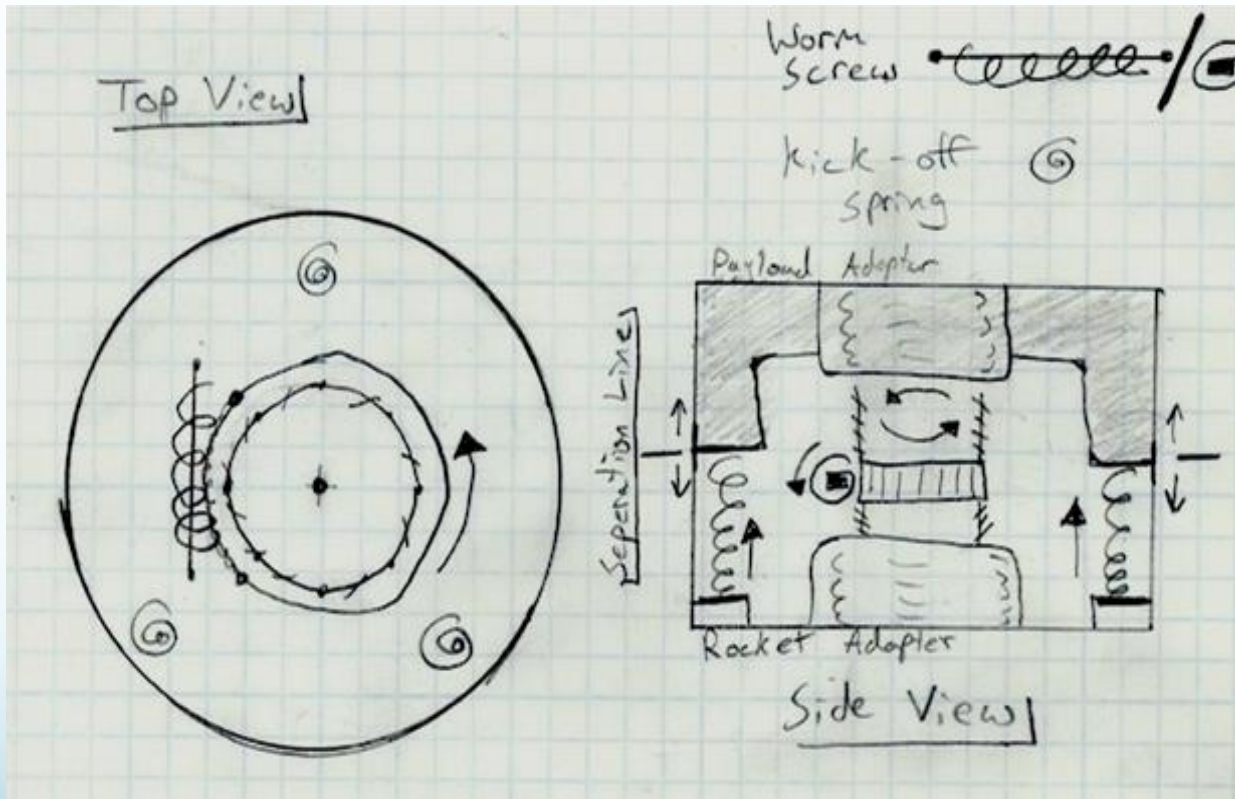 Top View
Worm
screw
Kick-off
spring
Payload Adapter
Seperation Line
Rocket Adapter
Side View